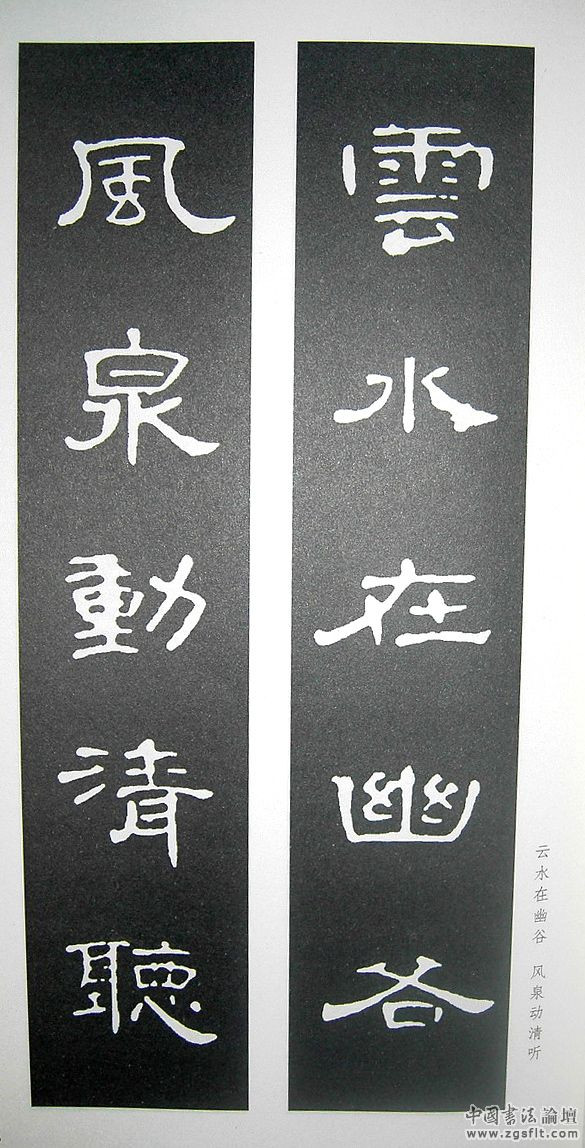 雲水在幽谷
風泉動清聽
云水在幽谷 风泉动清听
中國書法論壇
www.zgsflt.com